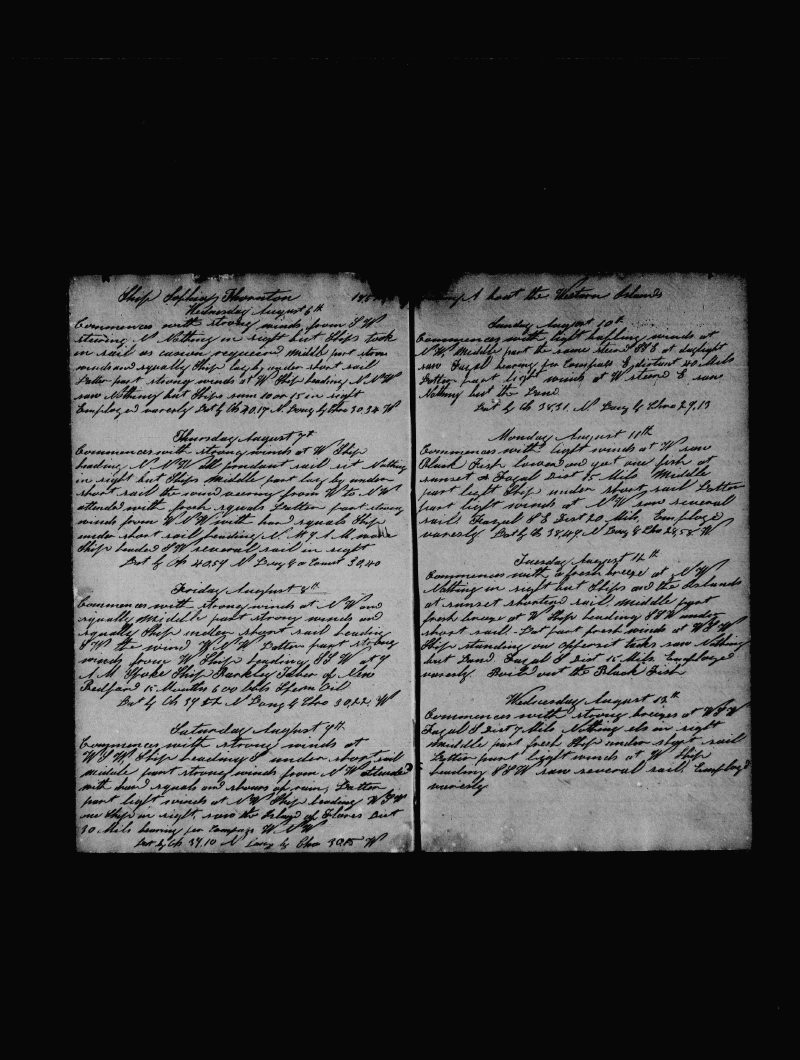 Ship Sophia Thornton 185
Wednesday August 6th
Commences with strong winds from S W
steering N Nothing in sight but Ships took
in sail as occasion required Middle part strong
winds and squally Ship lay by under short sail
Latter part strong winds at W Ship heading N N W
saw Nothing but Ships some 10 or 15 in sight
Employed variously Lat by Ob 40.17 N Long by Chro 30.34 W
Thursday August 7th
Commences with strong winds at W Ship
heading N N W all pondant sail set Nothing
in sight but Ships Middle part lay by under
short sail the wind veering from W to N W
attended with fresh squals Latter part strong
winds from W N W with hard squals Ship
under short sail heading N at 9 A.M. made
Ship headed S W several sail in sight
Lat by Ob 40.59 N Long by Count 30.40
Friday August 8th
Commences with strong winds at N W and
squally Middle part strong winds and
squally Ship under short sail heading
S W the wind W N W Latter part strong
winds from W Ship heading S S W at 9
A.M. Spoke Ship Barkley Taber of New
Bedford 15 Months 600 bbls Sperm Oil
Lat by Ob 39.52 N Long by Chro 30.22 W
Saturday August 9th
Commences with strong winds at
W S W Ship heading S under short sail
middle part strong winds from N W attended
with hard squals and showers of rain, Latter
part light winds at N W Ship heading W S W
one Ship in sight, saw the Island of Flores Dist
30 Mils bearing per Compass W N W
Lat by Ob 39.10 N Long by Chro 30.15 W
about the Western Islands
Sunday August 10th
Commences with light bafling winds at
N W, Middle part the same steerd S S E at daylight
saw Fayal bearing per Compass E distant 40 Mils
Latter part light winds at W steerd E saw
Nothing but the Land
Lat by Ob 38.31 N Long by Chro 29.13
Monday August 11th
Commences with light winds at W saw
Black Fish lowered and got one fish at
sunset Fayal Dist 15 Mils Middle
part light Ship under short sail Latter
part light winds at N W saw several
sail Fayal S E Dist 20 Mils, Employed
variously Lat by Ob 38.49 N Long by Chro 28.58 W
Tuesday August 12th
Commences with a fresh breeze at N W
Nothing in sight but Ships and the Islands
at sunset shortend sail, Middle part
fresh breeze at W Ship heading S S W under
short sail Lat part fresh winds at W S W
Ship standing on oppersit tacks saw Nothing
but Land Fayal S Dist 15 Mils Employed
variously Boild out the Black Fish
Wednesday August 13th
Commences with strong breezes at W S W
Fayal S Dist 7 Mils Nothing els in sight
middle part fresh Ship under short sail
Latter part light winds at W Ship
heading S S W saw several sail, Employd
variously